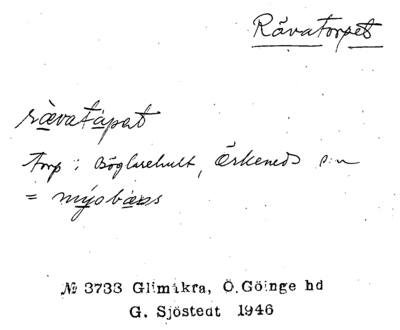 Råvatorpet
rävatápat
torp i Böglarehult, Örkeneds s:n
= mýobæns
№ 3733 Glimåkra, Ö. Göinge hd
G. Sjöstedt 1946